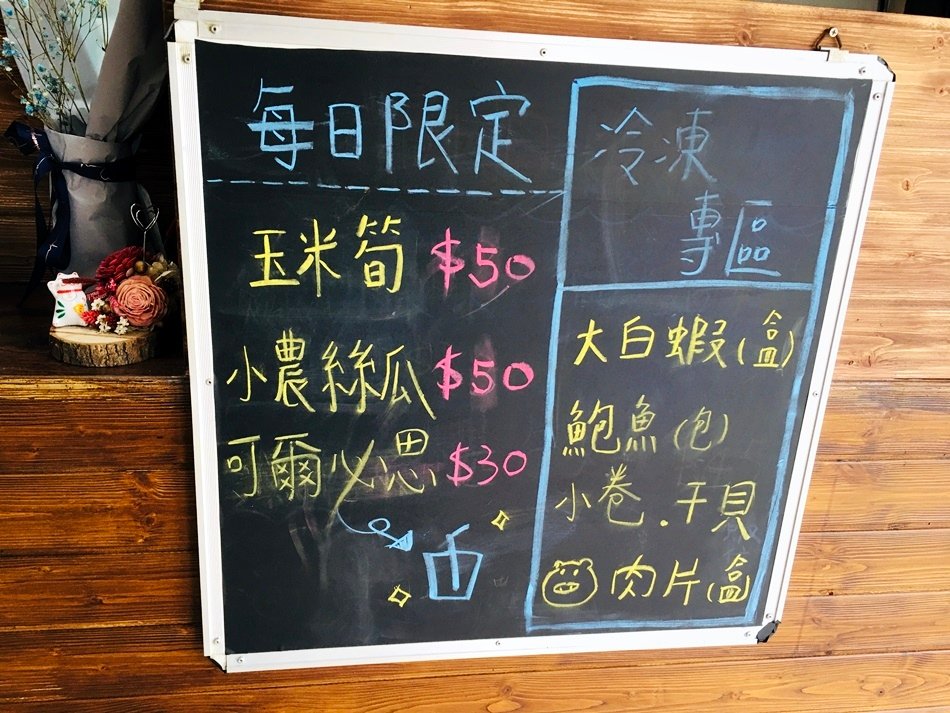 每日限定
玉米筍 $50
小農絲瓜 $50
可爾必思 $30
冷凍
專區
大白蝦(盒)
鮑魚(包)
小卷.干貝
肉片(盒)